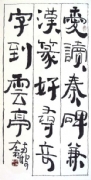 愛讀秦碑兼
漢篆好尋奇
字到雲亭